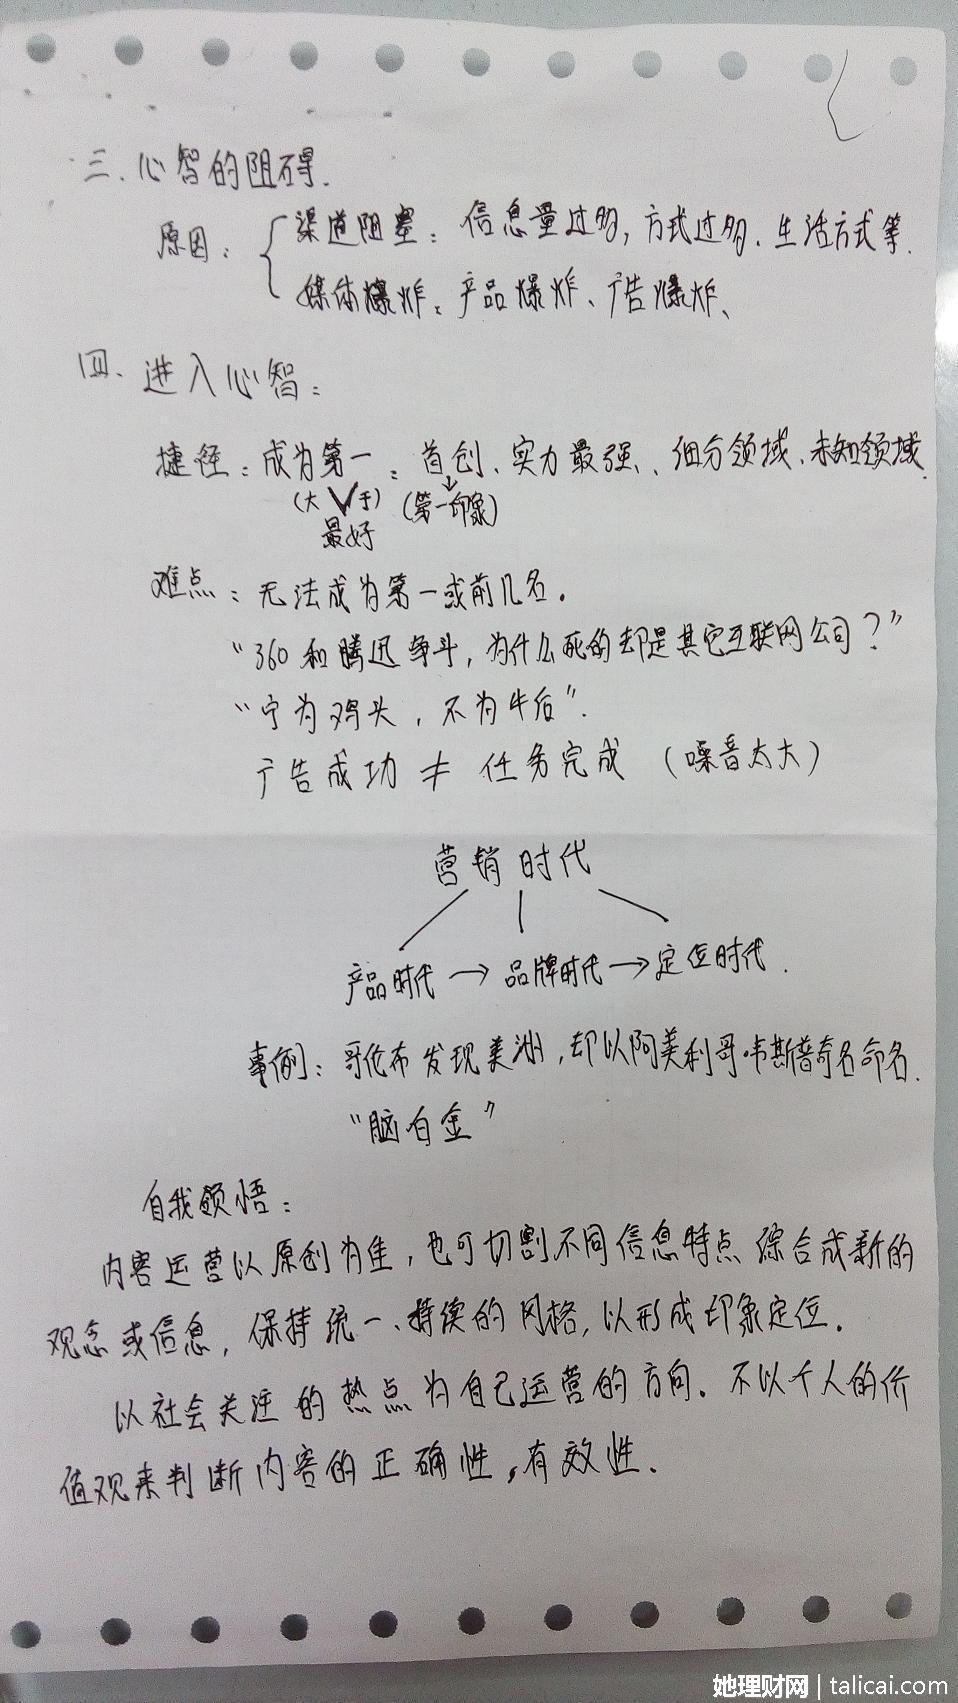 三、心智的阻碍.
原因: 渠道阻塞: 信息量过多, 方式过多、生活方式等.
媒体爆炸、产品爆炸、广告爆炸、
四、进入心智:
捷径: 成为第一: 首创、实力最强、细分领域、未知领域.
(大于) (第一印象)
最好
难点: 无法成为第一或前几名.
“360和腾迅争斗, 为什么死的却是其它互联网公司?”
“宁为鸡头, 不为牛后”.
广告成功 ≠ 任务完成 (噪音太大)
营销时代
产品时代 → 品牌时代 → 定位时代.
事例: 哥伦布发现美洲, 却以阿美利哥·韦斯普奇名命名.
“脑白金”
自我领悟:
内容运营以原创为佳, 也可切割不同信息特点 综合成新的
观念或信息, 保持统一、持续的风格, 以形成印象定位.
以社会关注的热点为自己运营的方向. 不以个人的价
值观来判断内容的正确性,有效性.
她理财网|talicai.com